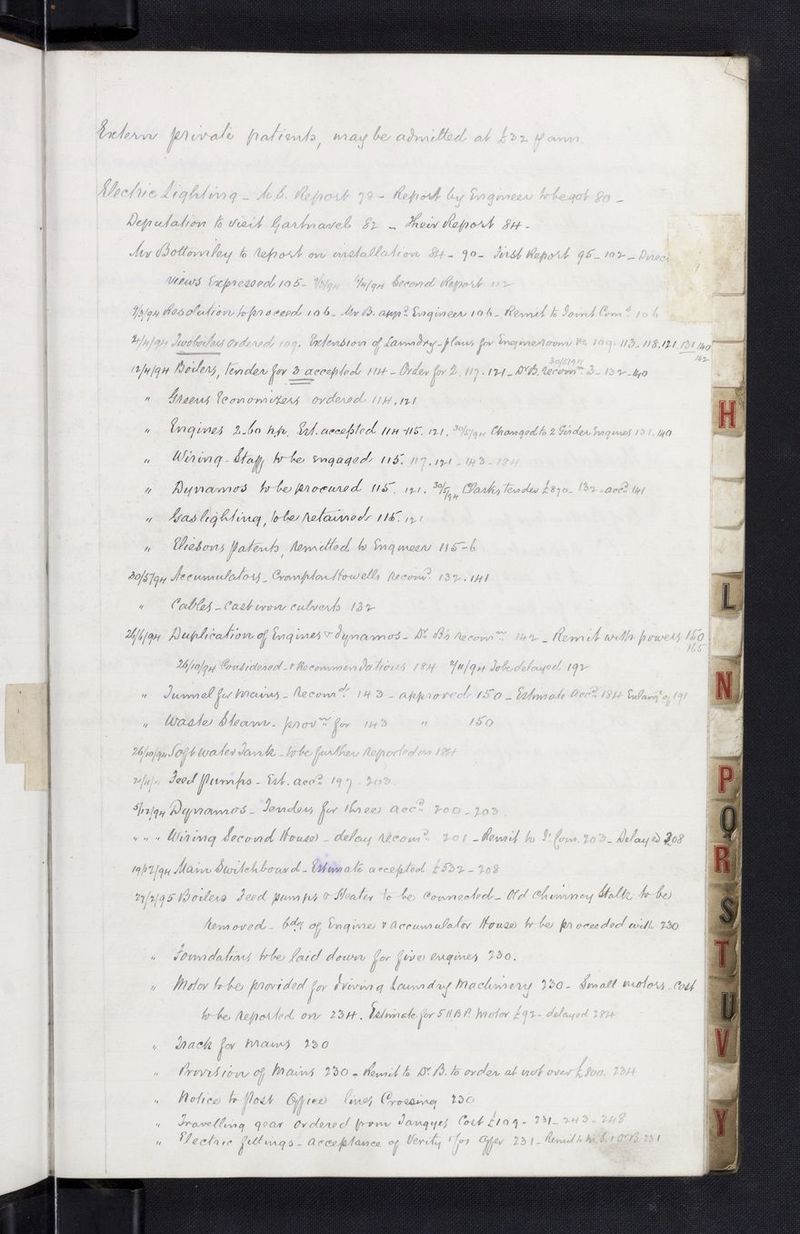 Extern private patients, may be admitted at £32 p ann
Electric Lighting - Report 78 - Report by Engineer to be got 80 -
Deputation to visit Gartnavel 82 - Their Report 84 -
Mr Bottomley to report on installation 84 - 90 - First Report 95 - 102 - Direc
views expressed 105 - Second Report 112
Resolution to proceed 106 - Mr B. app.d Engineer 106 - Remit to Joint Com. 106
Two boilers ordered 109. Extension of Laundry - plans for Engine room &c 109. 113. 118. 121. 131 140
142
30/5/94
12/4/94 Boilers, tender for 3 accepted 114 - Order for 2. 117. 121 - Dr B. recom 3 - 132 - 140
" Greens Economizers ordered 114. 121
" Engines 2 - 60 h.p. Est. accepted 114-115. 121. 30/5/94 Changed to 2 Girder Engines 131. 140
" Wiring - Staff to be engaged 115. 117. 121 - 143 - 184
" Dynamos to be procured 115. 121. 30/5/94 Clarks tender £870 - 132 - acc.d 141
" Gas lighting, to be retained 115. 121
" Eliesons patents, remitted to Engineer 115-6
30/5/94 Accumulators - Crompton Howells recom.d 132. 141
" Cables - Cast iron culverts 132
26/6/94 Duplication of Engines & dynamos - Dr B's recom 142 - Remit with powers 150
165
26/10/94 Considered & Recommendations 184 to be delayed 192
" Tunnel for mains - Recom.d 143 - approved 150 - Estimate acc.d 184 Enlarg. of 191
" Waste Steam - prov.n for 143 " 150
26/10/94 Soft water Tank - to be further reported on 184
Feed pumps - Est. acc.d 197 - 203
5/12/94 Dynamos - Tenders for three acc.d 200 - 203
" " " Wiring Second House - delay recom.d 201 - Remit to Jt. Com. 203 - Delayed 208
19/12/94 Main Switchboard - Estimate accepted £532 - 208
27/2/95 Boilers Feed pumps & Heater to be connected - Old chimney stalk to be
removed - bdg of Engine & accumulator House to be proceeded with 230
" Foundations to be laid down for five engines 230.
" Motor to be provided for driving Laundry Machinery 230 - Small motors - cost
to be reported on 234. Estimate for 5 HBP. motor £92 - delayed 284
" Track for mains 230
" Provision of Mains 230 - Remit to Dr B. to order at not over £800. 234
" Notice to Post Office lines Crossing 230
" Travelling gear ordered from Tangyes Cost £109 - 231 - 243 - 248
" Electric fittings - acceptance of Verity's offer 231 - Remit to 231
H
L
N
P
Q
R
S
T
U
V
Y